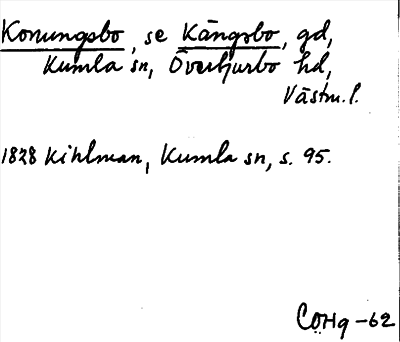 Konungsbo, se Kängsbo, gd,
Kumla sn, Övertjurbo hd,
Västm. l.
1828 Kihlman, Kumla sn, s. 95.
CÖHg -62